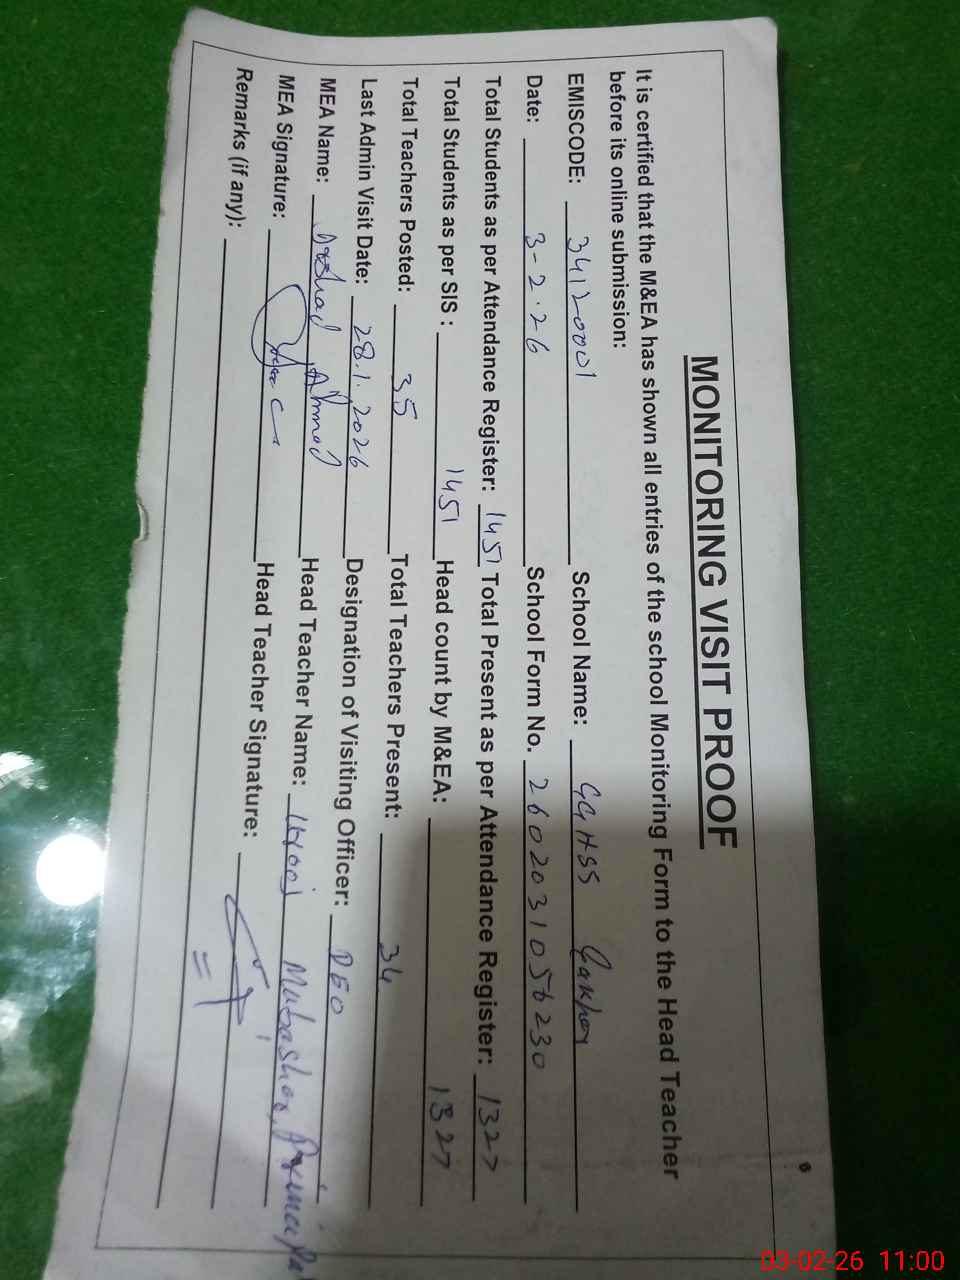 MONITORING VISIT PROOF
It is certified that the M&EA has shown all entries of the school Monitoring Form to the Head Teacher
before its online submission:
EMISCODE: 34120001 School Name: GGHSS
Date: 3-2-26 School Form No.
Total Students as per Attendance Register: 1451 Total Present as per Attendance Register: 1327
Total Students as per SIS : 1451 Head count by M&EA: 1327
Total Teachers Posted: 35 Total Teachers Present: 34
Last Admin Visit Date: 28.1.2026 Designation of Visiting Officer: DEO
MEA Name: Ahmad Head Teacher Name: Mubasher, Principal
MEA Signature: Head Teacher Signature:
Remarks (if any):
03-02-26 11:00